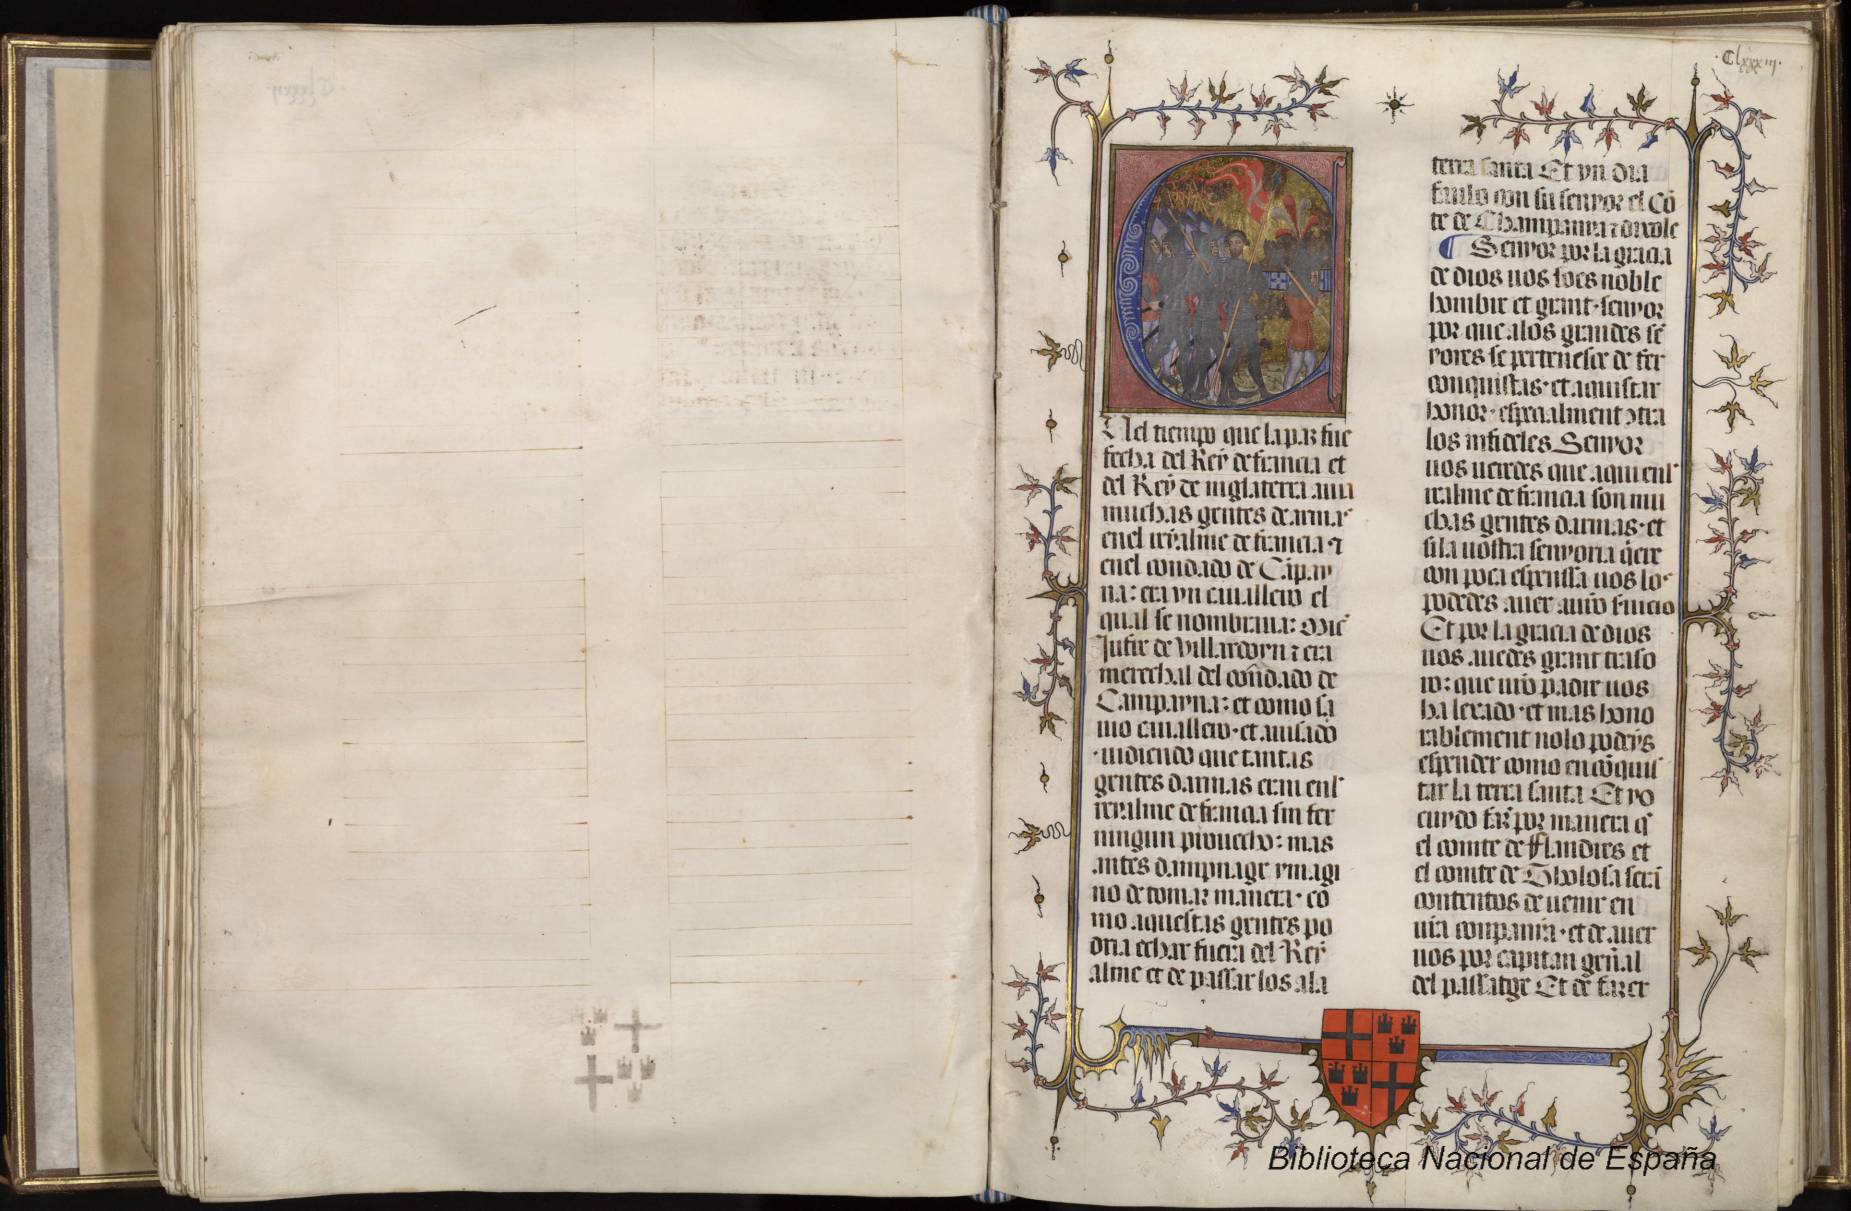 ·Clxxxiij·
Nel tiempo que la paz fue
fecha del Rey de francia et
del Rey de inglaterra auia
muchas gentes de armas
enel reyalme de francia ⁊
enel condado de Cāpay
na: era vn cauallero el
qual se nombraua: Mic̄
Jufre de Villardoyn ⁊ era
merechal del condado de
Campayna: et como sa
uio cauallero · et auisado
· uidiendo que tantas
gentes darmas eran enl
reyalme de francia sin fer
ningun prouecho: mas
antes dampnage ymagi
no de tomar manera · co
mo aquestas gentes po
dria echar fuera del Rey
alme et de passar los ala
terra santa Et vn dia
faulo con su senyor el Cō
te de Champanya ⁊ dixole
Senyor por la gracia
de dios uos soes noble
hombre et grant · senyor
por que alos grandes se
yores se pertenesce de fer
conquistas · et aquistar
honor · especialment ɔtra
los infideles Senyor
uos ueredes que aqui enl
realme de francia son mu
chas gentes darmas · et
si la uostra senyoria q̄ere
con poca espenssa uos los
podedes auer a ur̄o seruicio
Et por la gracia de dios
uos auedes grant traso
ro: que ur̄o padre uos
ha lexado · et mas hono
rablement nolo podeys
espender como en cōquis
tar la terra santa Et yo
cuydo far por manera q̄
el comte de fflandres et
el comte de Tholosa seran
contentos de uenir en
ur̄a companya · et de auer
uos por capitan gen̄al
del passatge Et de fazer
Biblioteca Nacional de España